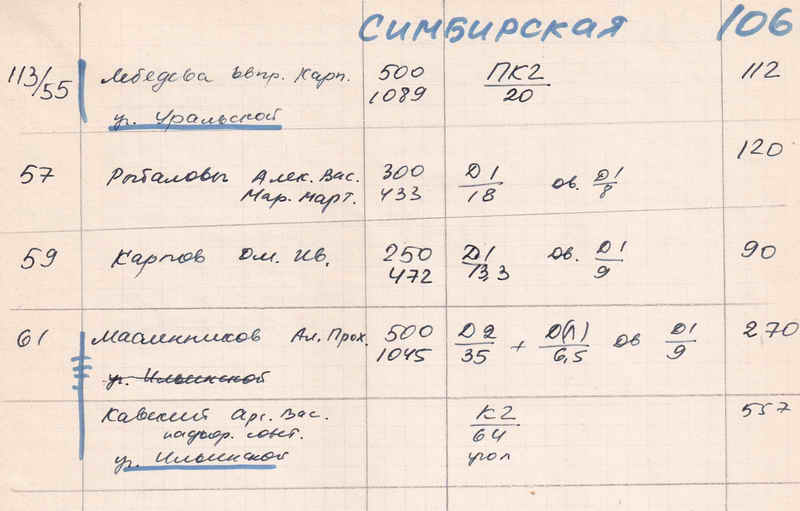 Симбирская 106
113/55 Лебедева Евпр. Карп. 500 ПК2 112
1089 20
уг. Уральской
57 Рыбаловы Алек. Вас. 300 Д1 ов. Д1 120
Мар. Март. 433 18 8
59 Карпов Дм. Ив. 250 Д1 ов. Д1 90
472 13,3 9
61 Масленников Ал. Прох. 500 Д2 + Д(П) ов Д1 270
1045 35 6,5 9
уг. Ильинской
Кавский Арс. Вас. К2 557
64
уг. Ильинской угол